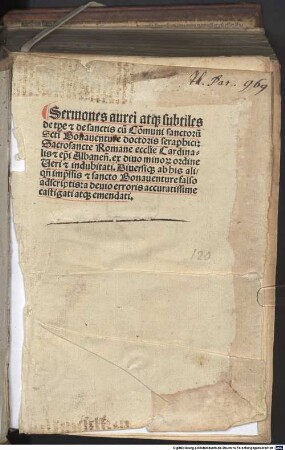 Th. Par. 969
Sermones aurei atqꝫ subtiles
de tpe ⁊ de sanctis cū Cōmuni sanctoꝝ
scti Bonauenture doctoris seraphici:
Sacrosancte Romane ecclie Cardina-
lis ⁊ epi Albaneñ. ex diuo minoꝝ ordine
Ueri ⁊ indubitati. Diuersiqꝫ ab his ali-
qñ impssis ⁊ sancto Bonauenture falso
adscriptis: a deuio erroris accuratissime
castigati atqꝫ emendati.
120